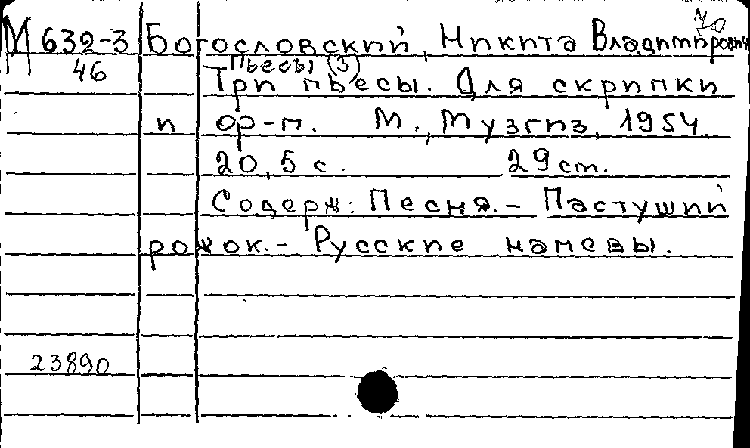 М 632-3 Богословский, Никита Владимирович
46 Пьесы (3)
Три пьесы. Для скрипки
и ор-п. М., Музгиз, 1954
20, 5 с. 29 cm.
Содерж: Песня. - Пастуший
рожок. - Русские напевы.
23890